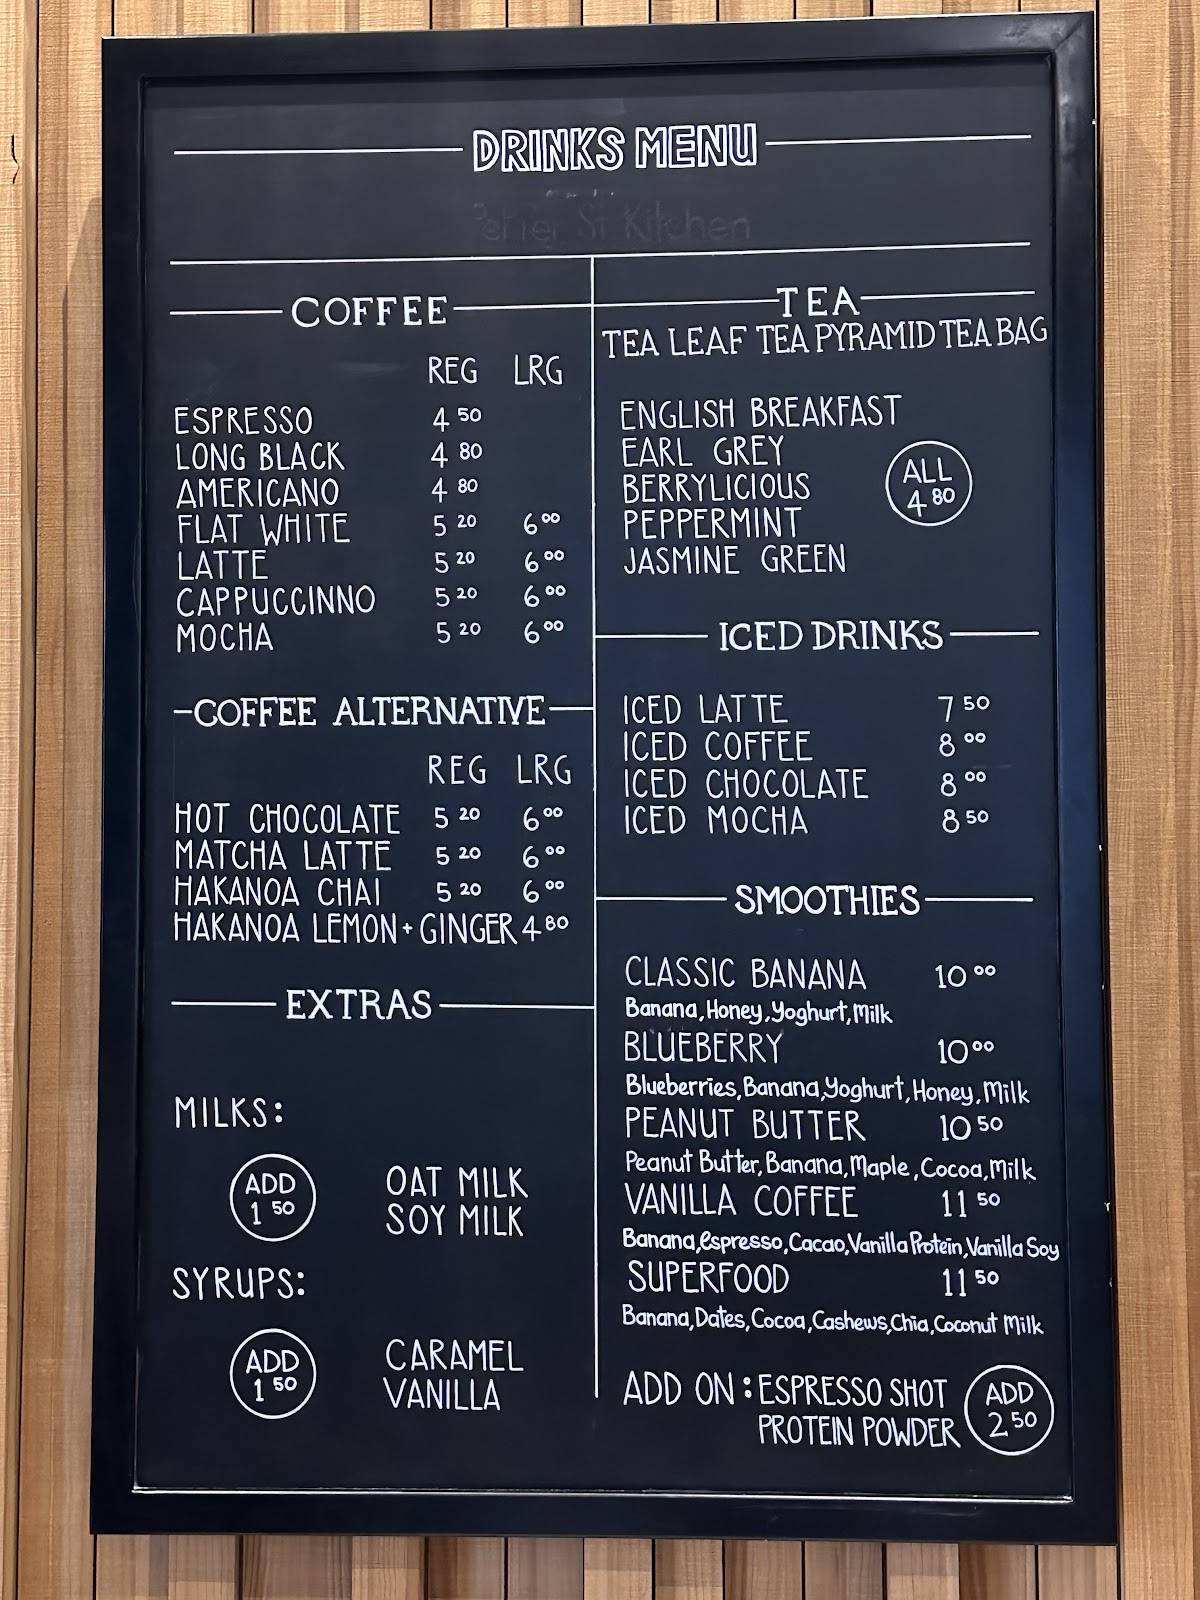 DRINKS MENU
St Kitchen
COFFEE
REG LRG
ESPRESSO 4 50
LONG BLACK 4 80
AMERICANO 4 80
FLAT WHITE 5 20 6 00
LATTE 5 20 6 00
CAPPUCCINNO 5 20 6 00
MOCHA 5 20 6 00
COFFEE ALTERNATIVE
REG LRG
HOT CHOCOLATE 5 20 6 00
MATCHA LATTE 5 20 6 00
HAKANOA CHAI 5 20 6 00
HAKANOA LEMON + GINGER 4 80
EXTRAS
MILKS:
ADD
1 50
OAT MILK
SOY MILK
SYRUPS:
ADD
1 50
CARAMEL
VANILLA
TEA
TEA LEAF TEA PYRAMID TEA BAG
ENGLISH BREAKFAST
EARL GREY
BERRYLICIOUS
PEPPERMINT
JASMINE GREEN
ALL
4 80
ICED DRINKS
ICED LATTE 7 50
ICED COFFEE 8 00
ICED CHOCOLATE 8 00
ICED MOCHA 8 50
SMOOTHIES
CLASSIC BANANA 10 00
Banana, Honey, Yoghurt, Milk
BLUEBERRY 10 00
Blueberries, Banana, Yoghurt, Honey, Milk
PEANUT BUTTER 10 50
Peanut Butter, Banana, Maple, Cocoa, Milk
VANILLA COFFEE 11 50
Banana, Espresso, Cacao, Vanilla Protein, Vanilla Soy
SUPERFOOD 11 50
Banana, Dates, Cocoa, Cashews, Chia, Coconut Milk
ADD ON: ESPRESSO SHOT
PROTEIN POWDER
ADD
2 50